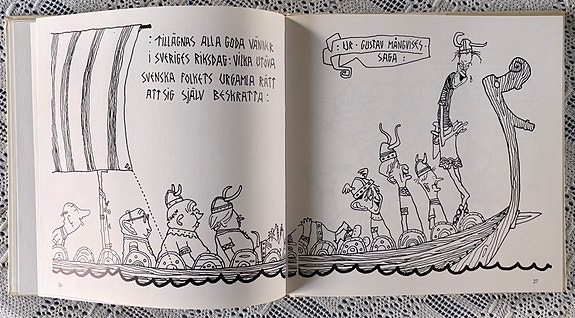 : TILLÄGNAS ALLA GODA VÄNNER
I SVERIGES RIKSDAG: VILKA UTÖVA
SVENSKA FOLKETS URGAMLA RÄTT
ATT SIG SJÄLV BESKRATTA :
: UR · GUSTAV MÅNGVISES ·
SAGA :
26
27